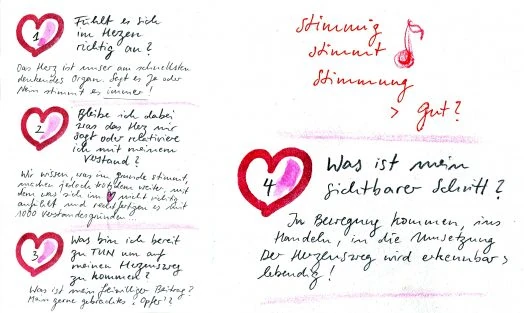 1
Fühlt es sich
im Herzen
richtig an?
Das Herz ist unser am schnellsten
denkendes Organ. Sagt es Ja oder
Nein stimmt es immer!
2
Bleibe ich dabei
was das Herz mir
sagt oder relativiere
ich mit meinem
Verstand?
Wir wissen, was im Grunde stimmt,
machen jedoch trotzdem weiter, mit
dem was sich im nicht richtig
anfühlt und rechtfertigen es mit
1000 Verstandesgründen.
3
Was bin ich bereit
zu TUN um auf
meinen Herzensweg
zu kommen?
Was ist mein freiwilliger Beitrag?
Mein gerne gebrachtes "Opfer"?
Stimmig
stimmt
Stimmung
> gut?
4
Was ist mein
sichtbarer Schritt?
In Bewegung kommen, ins
Handeln, in die Umsetzung
Der Herzensweg wird erkennbar &
lebendig!